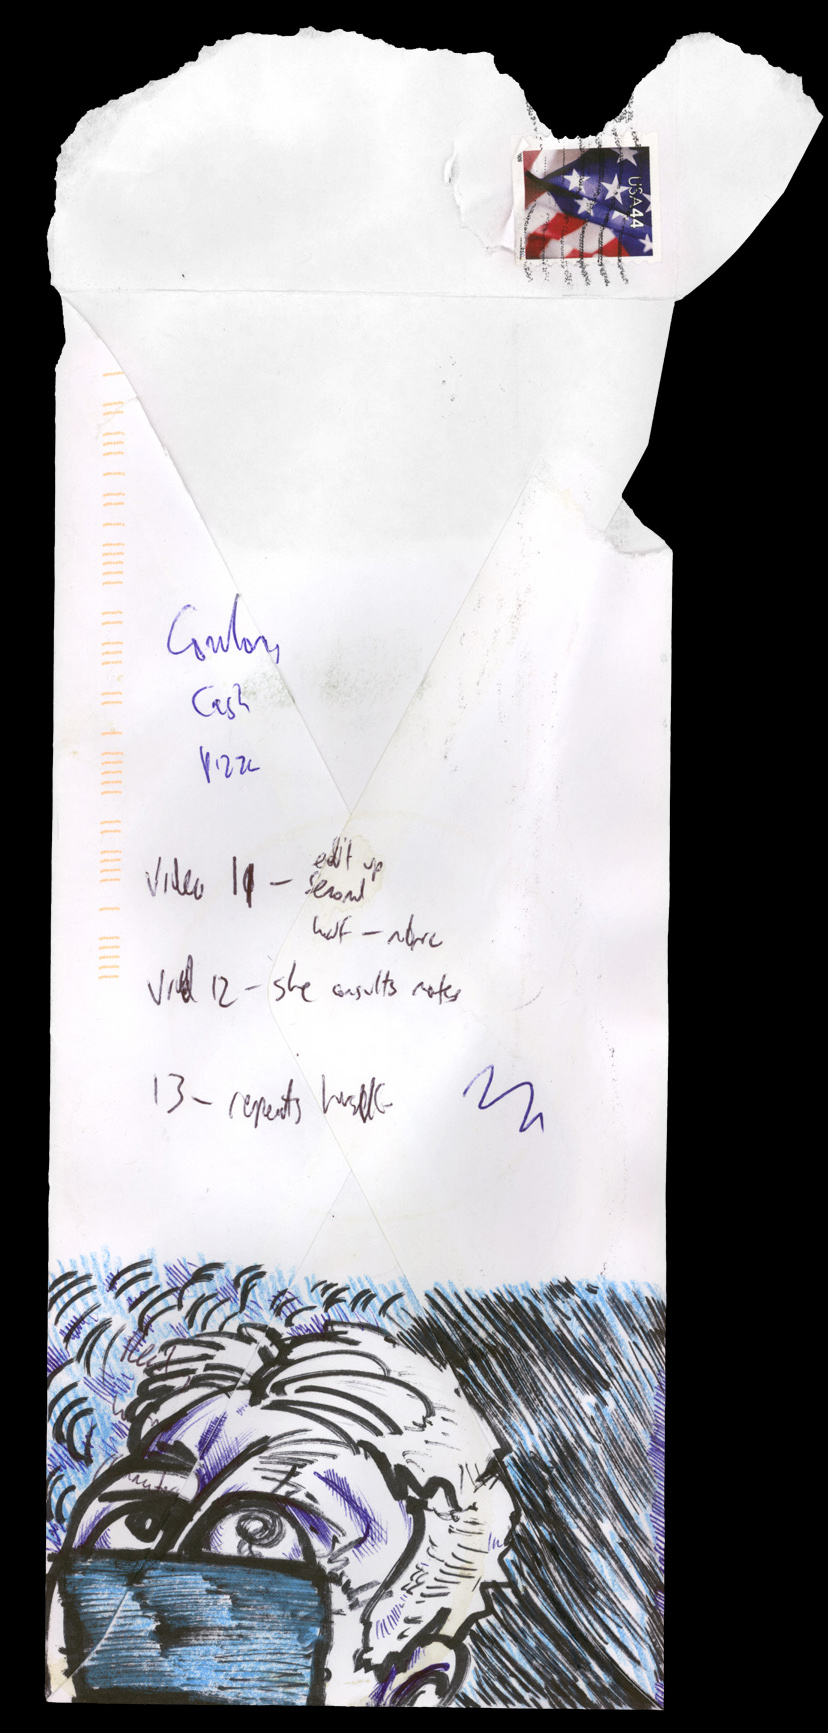 USA 44
Cash
Video 11 – edit up
second
half – more
Vid 12 – she consults notes
13 – repeats herself